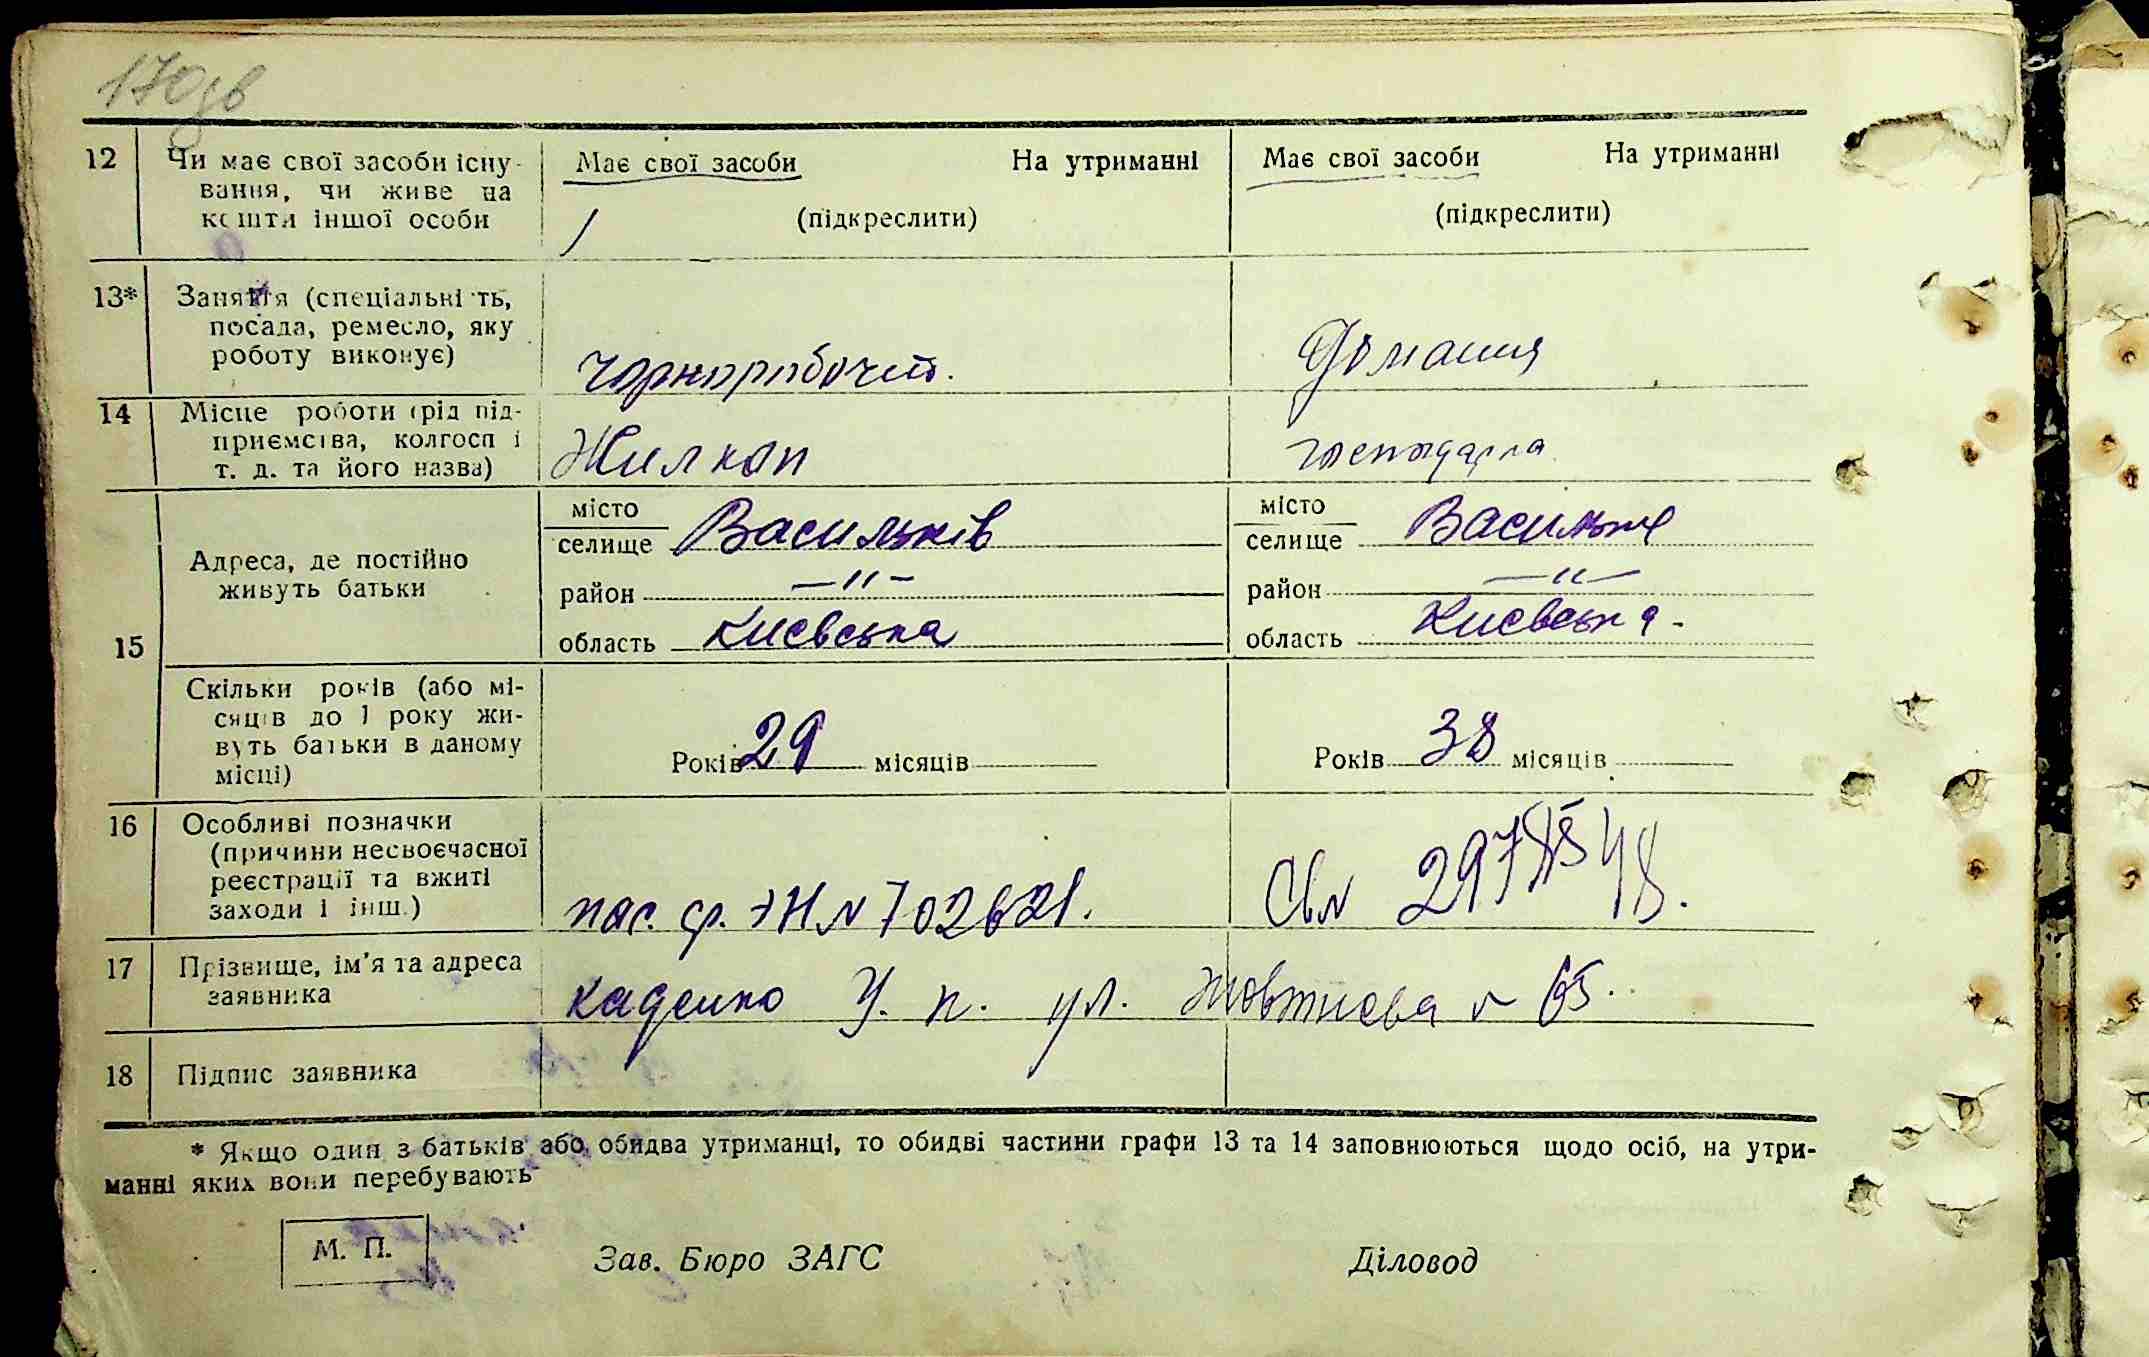 170зв
12 Чи має свої засоби існу- Має свої засоби На утриманні Має свої засоби На утриманні
вання, чи живе на
кошти іншої особи (підкреслити) (підкреслити)
13* Заняття (спеціальність,
посада, ремесло, яку
роботу виконує) Чорноробочий. Домашня
14 Місце роботи (рід під-
приємства, колгосп і
т. д. та його назва) Жилкоп господарка
15 Адреса, де постійно
живуть батьки
місто
селище Васильків
район —〃—
область Києвська
місто
селище Васильків
район —〃—
область Києвська -
Скільки років (або мі-
сяців до 1 року жи-
вуть батьки в даному
місці)
Років 29 місяців Років 38 місяців
16 Особливі позначки
(причини несвоєчасної
реєстрації та вжиті
заходи і інш.) пас. ф. ЭН № 702621. Св № 297 48.
17 Прізвище, ім'я та адреса
заявника Каденко У. п. ул. Жовтнева № 65.
18 Підпис заявника
* Якщо один з батьків або обидва утриманці, то обидві частини графи 13 та 14 заповнюються щодо осіб, на утри-
манні яких вони перебувають
М. П. Зав. Бюро ЗАГС Діловод